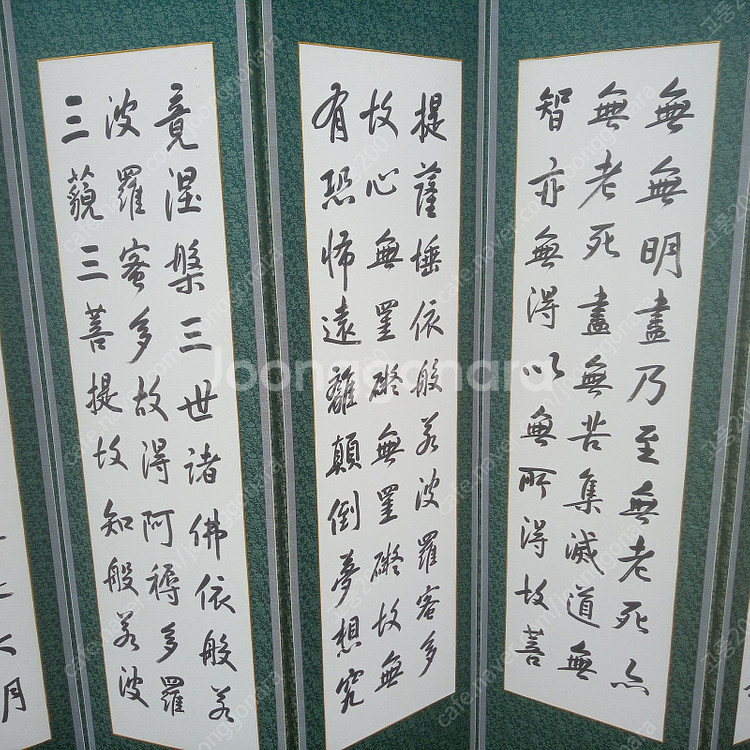 無無明盡乃至無老死亦
無老死盡無苦集滅道無
智亦無得以無所得故菩
提薩埵依般若波羅蜜多
故心無罣礙無罣礙故無
有恐怖遠離顛倒夢想究
竟涅槃三世諸佛依般若
波羅蜜多故得阿耨多羅
三藐三菩提故知般若波
Joonggonara
cafe.naver.com/joonggonara